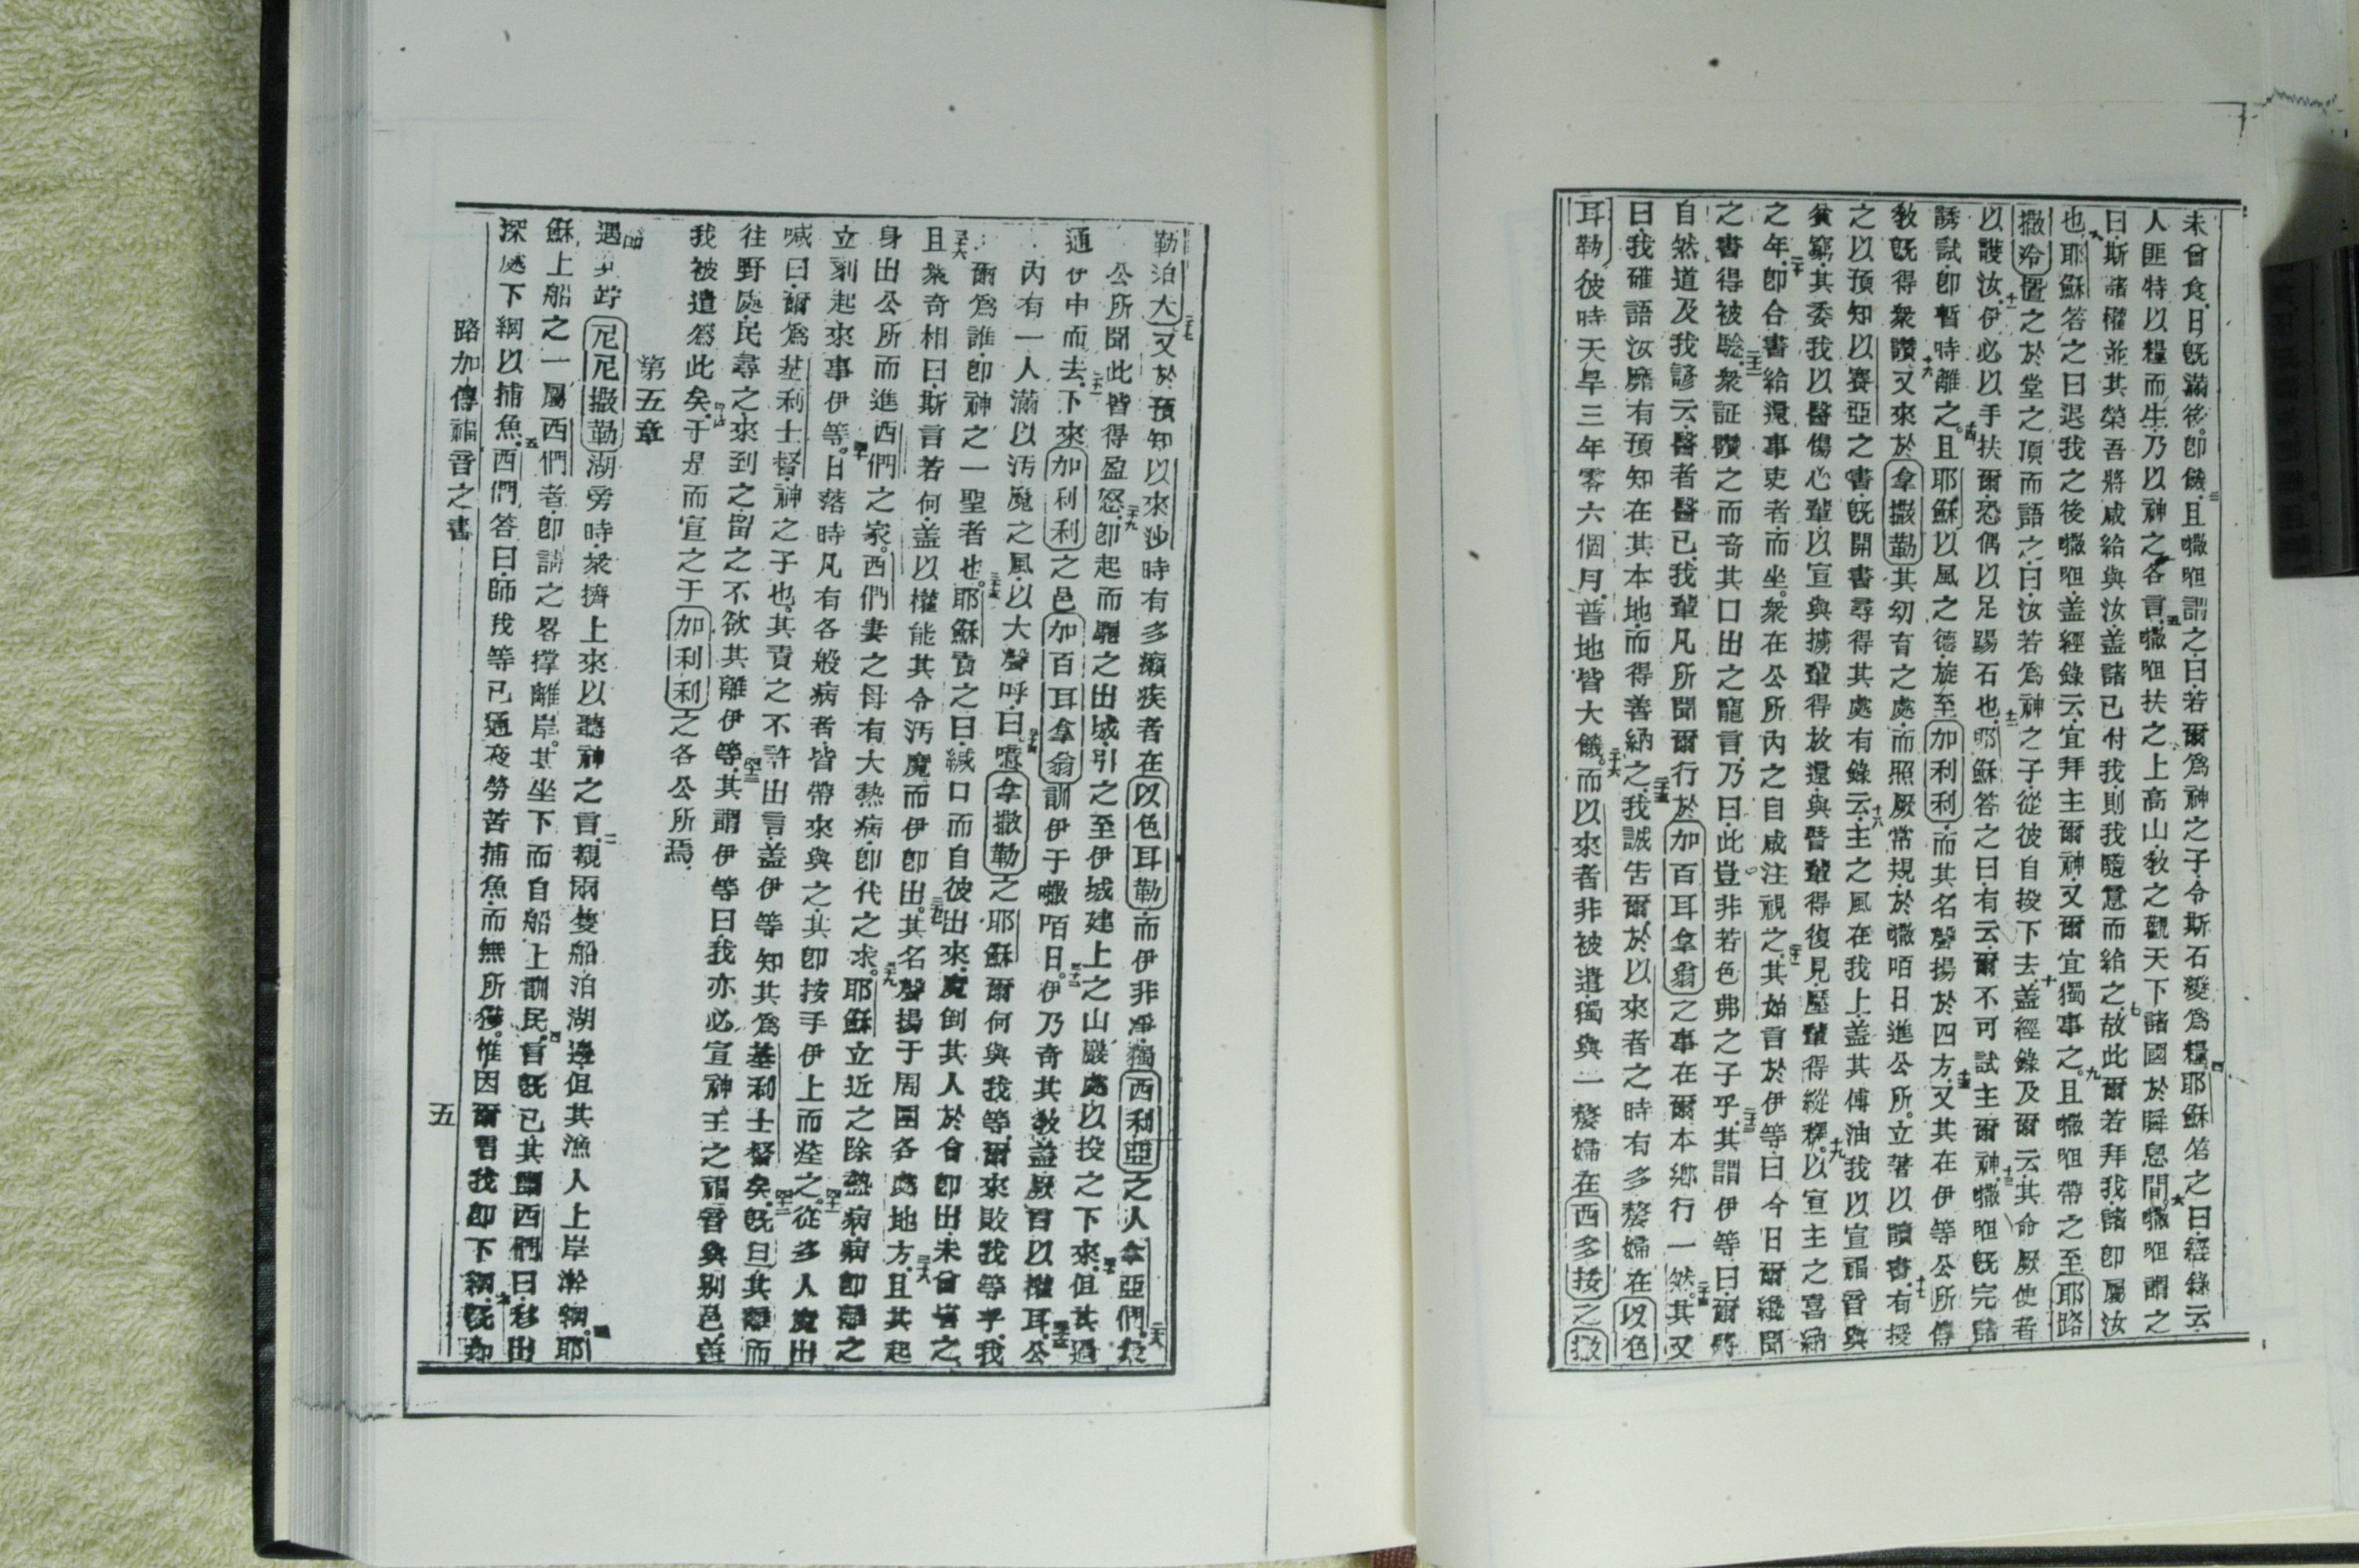 未曾食日既滿後即饑三且𡃤咀謂之曰若爾爲神之子令斯石變爲糧四耶穌答之曰經錄云
人匪特以糧而生乃以神之各言五𡃤咀扶之上高山敎之觀天下諸國於瞬息間六𡃤咀謂之
曰斯諸權並其榮吾將咸給與汝盖諸已付我則我隨意而給之七故此爾若拜我諸即屬汝
也八耶穌答之曰退我之後𡃤咀盖經錄云宜拜主爾神又爾宜獨事之九且𡃤咀帶之至耶路
撒冷置之於堂之頂而語之曰汝若爲神之子從彼自投下去十盖經錄及爾云其命厥使者
以護汝十一伊必以手扶爾恐偶以足踢石也十二耶穌答之曰有云爾不可試主爾神十三𡃤咀既完諸
誘試即暫時離之十四且耶穌以風之德旋至加利利而其名聲揚於四方十五又其在伊等公所傳
敎既得衆讚十六又來於拿撒勒其幼育之處而照厥常規於𡃤咟日進公所立著以讀書十七有授
之以預知以賽亞之書既開書尋得其處有錄云十八主之風在我上盖其傅油我以宣福音與
貧窮其委我以醫傷心輩以宣與擄輩得放還與瞽輩得復見壓輩得縱釋十九以宣主之喜納
之年二十即合書給還事吏者而坐衆在公所內之自咸注視之二十一其始言於伊等曰今日爾纔聞
之書得被騐二十二衆証讚之而奇其口出之寵言乃曰此豈非若色弗之子乎二十三其謂伊等曰爾將
自然道及我諺云醫者醫已我輩凡所聞爾行於加百耳拿翁之事在爾本鄉行一然二十四其又
曰我確語汝靡有預知在其本地而得善納之二十五我誠告爾於以來者之時有多嫠婦在以色
耳勒彼時天旱三年零六個月普地皆大饑二十六而以來者非被遣獨與一嫠婦在西多按之撒
勒泊大二十七又於預知以來沙時有多癩疾者在以色耳勒而伊非凈獨西利亞之人拿亞們二十八衆
公所聞此皆得盈怒二十九即起而驅之出城引之至伊城建上之山巖處以投之下來三十但其過
通伊中而去三十一下來加利利之邑加百耳拿翁訓伊于𡃤咟日三十二伊乃奇其敎盖厥言以權耳三十三公
內有一人滿以汚魔之風以大聲呼曰三十四嘻拿撒勒之耶穌爾何與我等爾來敗我等乎我
爾爲誰即神之一聖者也三十五耶穌責之曰緘口而自彼出來魔倒其人於會即出未曾害之
三十六且衆奇相曰斯言若何盖以權能其令汚魔而伊即出三十七其名聲揚于周圍各處地方三十八且其起
身出公所而進西們之家西們妻之母有大熱病即代之求三十九耶穌立近之除熱病病即離之
立刻起來事伊等四十日落時凡有各般病者皆帶來與之其即按手伊上而痊之四十一從多人魔出
喊曰爾爲基利士督神之子也其責之不許出言盖伊等知其爲基利士督矣四十二既旦其離而
往野處民尋之來到之留之不欲其離伊等四十三其謂伊等曰我亦必宣神王之福音與別邑盖
我被遣爲此矣四十四于是而宣之于加利利之各公所焉
第五章
遇其跕尼尼撒勒湖旁時衆擠上來以聽神之言二覩兩隻船泊湖邊但其漁人上岸澣網三耶
穌上船之一屬西們者即請之畧撑離岸其坐下而自船上訓民四言既已其謂西們曰移出
深處下網以捕魚五西們答曰師我等已通夜勞苦捕魚而無所獲惟因爾言我即下網六既如
路加傳福音之書
五